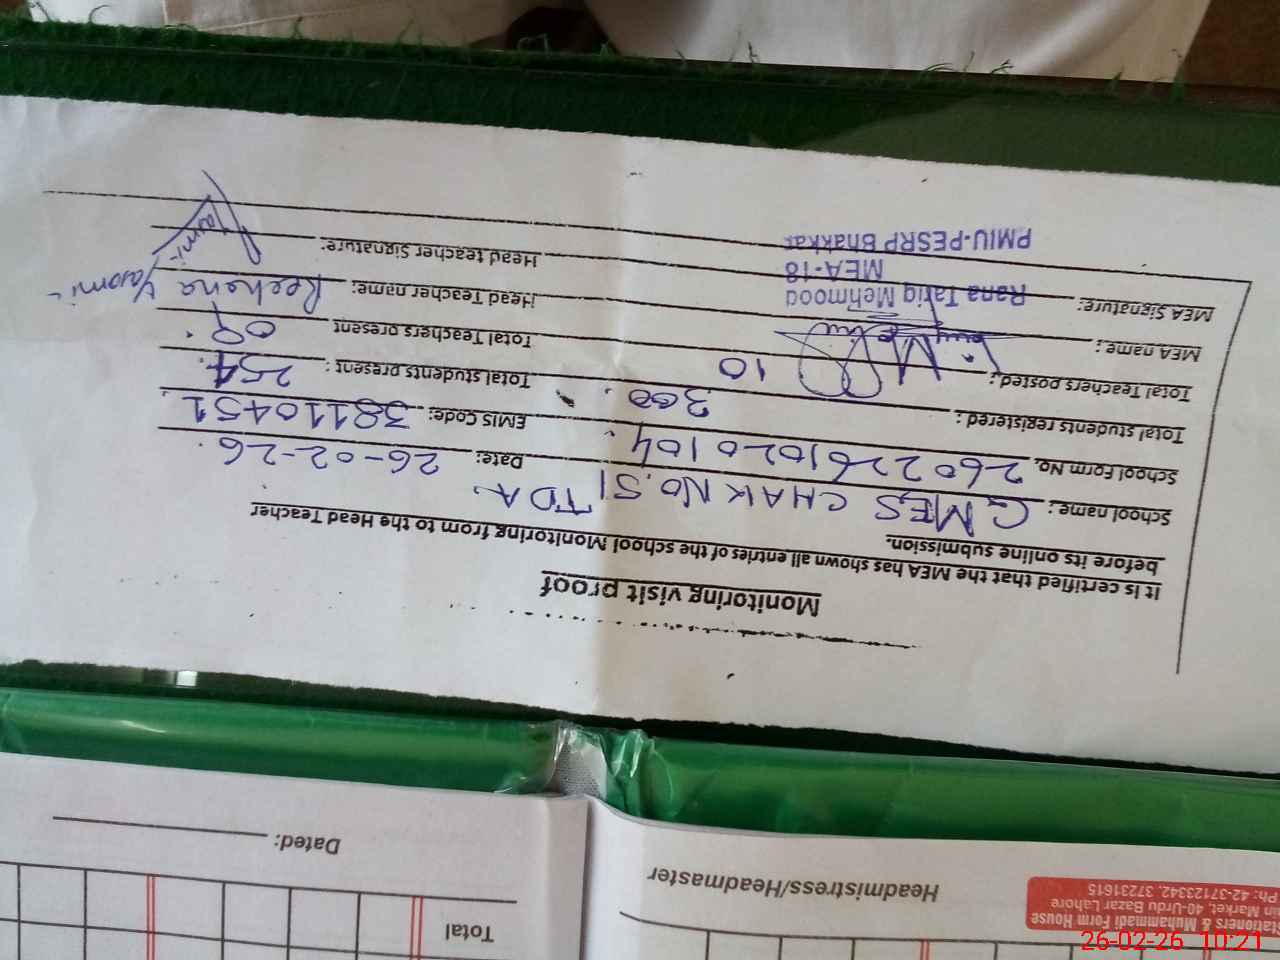 Monitoring visit proof
It is certified that the MEA has shown all entries of the school Monitoring from to the Head Teacher
before its online submission.
School name: GMES CHAK NO. 51 TDA Date: 26-02-26
School Form No. 260226102 0104 EMIS Code: 38110451
Total students registered: 300 Total students present: 254
Total Teachers posted: 10 Total Teachers present 09
MEA name: Head Teacher name: Reehana
MEA Signature: Head teacher Signature:
Rana Tariq Mehmood
MEA-18
PMIU-PESRP Bhakkar
Headmistress/Headmaster Dated:
Total
Stationers & Muhammadi Form House
in Market, 40-Urdu Bazar Lahore
Ph: 42-37123342, 37231615
26-02-26 10:21